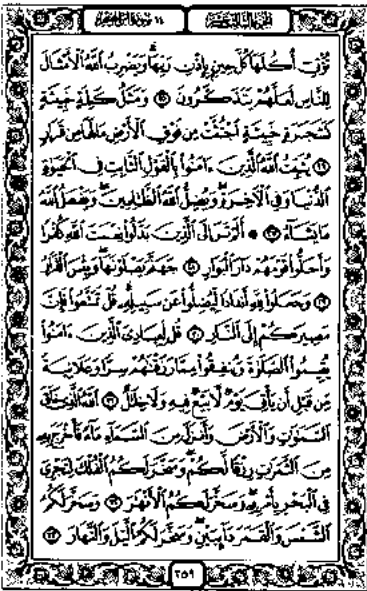 الجزء الثالث عشر ١٤ سورة إبراهيم
تُؤْتِي أُكُلَهَا كُلَّ حِينٍ بِإِذْنِ رَبِّهَا وَيَضْرِبُ اللَّهُ الْأَمْثَالَ
لِلنَّاسِ لَعَلَّهُمْ يَتَذَكَّرُونَ ٢٥ وَمَثَلُ كَلِمَةٍ خَبِيثَةٍ
كَشَجَرَةٍ خَبِيثَةٍ اجْتُثَّتْ مِن فَوْقِ الْأَرْضِ مَا لَهَا مِن قَرَارٍ
٢٦ يُثَبِّتُ اللَّهُ الَّذِينَ ءَامَنُوا بِالْقَوْلِ الثَّابِتِ فِي الْحَيَوٰةِ
الدُّنْيَا وَفِي الْآخِرَةِ وَيُضِلُّ اللَّهُ الظَّٰلِمِينَ وَيَفْعَلُ اللَّهُ
مَا يَشَاءُ ٢٧ ۞ أَلَمْ تَرَ إِلَى الَّذِينَ بَدَّلُوا نِعْمَتَ اللَّهِ كُفْرًا
وَأَحَلُّوا قَوْمَهُمْ دَارَ الْبَوَارِ ٢٨ جَهَنَّمَ يَصْلَوْنَهَا وَبِئْسَ الْقَرَارُ
٢٩ وَجَعَلُوا لِلَّهِ أَندَادًا لِّيُضِلُّوا عَن سَبِيلِهِ قُلْ تَمَتَّعُوا فَإِنَّ
مَصِيرَكُمْ إِلَى النَّارِ ٣٠ قُل لِّعِبَادِيَ الَّذِينَ ءَامَنُوا
يُقِيمُوا الصَّلَوٰةَ وَيُنفِقُوا مِمَّا رَزَقْنَٰهُمْ سِرًّا وَعَلَانِيَةً
مِّن قَبْلِ أَن يَأْتِيَ يَوْمٌ لَّا بَيْعٌ فِيهِ وَلَا خِلَٰلٌ ٣١ اللَّهُ الَّذِي خَلَقَ
السَّمَٰوَٰتِ وَالْأَرْضَ وَأَنزَلَ مِنَ السَّمَاءِ مَاءً فَأَخْرَجَ بِهِ
مِنَ الثَّمَرَٰتِ رِزْقًا لَّكُمْ وَسَخَّرَ لَكُمُ الْفُلْكَ لِتَجْرِيَ
فِي الْبَحْرِ بِأَمْرِهِ وَسَخَّرَ لَكُمُ الْأَنْهَٰرَ ٣٢ وَسَخَّرَ لَكُمُ
الشَّمْسَ وَالْقَمَرَ دَائِبَيْنِ وَسَخَّرَ لَكُمُ الَّيْلَ وَالنَّهَارَ ٣٣
٢٥٩